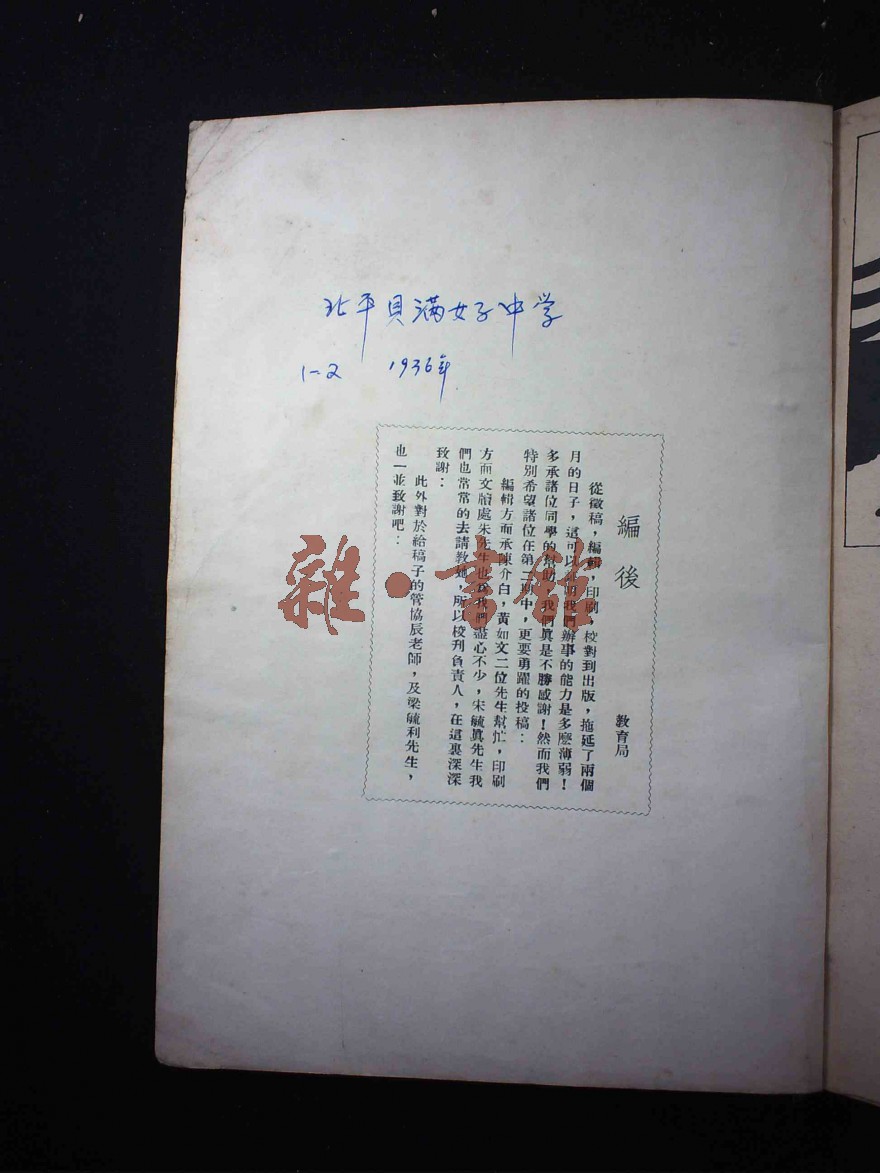 北平貝满女子中学
1-2 1936年
編後
教育局
從徵稿，編輯，印刷，校對到出版，拖延了兩個
月的日子，這可以証明我們辦事的能力是多麼薄弱！
多承諸位同學的幫助，我們真是不勝感謝！然而我們
特別希望諸位在第二期中，更要勇躍的投稿：
編輯方面承陳介白，黃如文二位先生幫忙，印刷
方面文牘處朱先生也為我們盡心不少，宋毓真先生我
們也常常的去請教她，所以校刊負責人，在這裏深深
致謝：
此外對於給稿子的管協辰老師，及梁毓利先生，
也一並致謝吧：
雜·書館